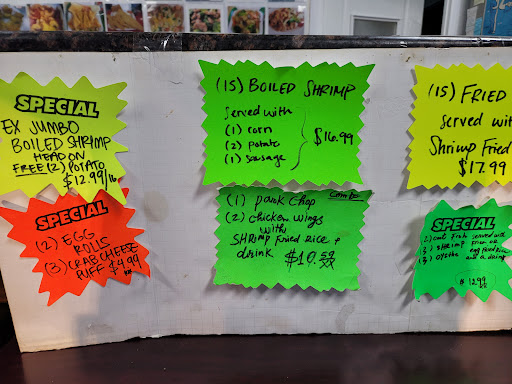 SPECIAL
EX JUMBO
BOILED SHRIMP
HEAD ON
FREE (2) POTATO
$12.99/lb
SPECIAL
(2) EGG
ROLLS
(3) CRAB CHEESE
PUFF $4.99
(15) BOILED SHRIMP
Served with
(1) corn
(2) potato
(1) sausage
$16.99
Combo
(1) pork chop
(2) chicken wings
with
SHRimp fried Rice +
drink $10.59
(15) FRIED
served wit
Shrimp Fried
$17.99
SPECIAL
served with
SHRIMP
egg fried rice
and a drink
$12.99